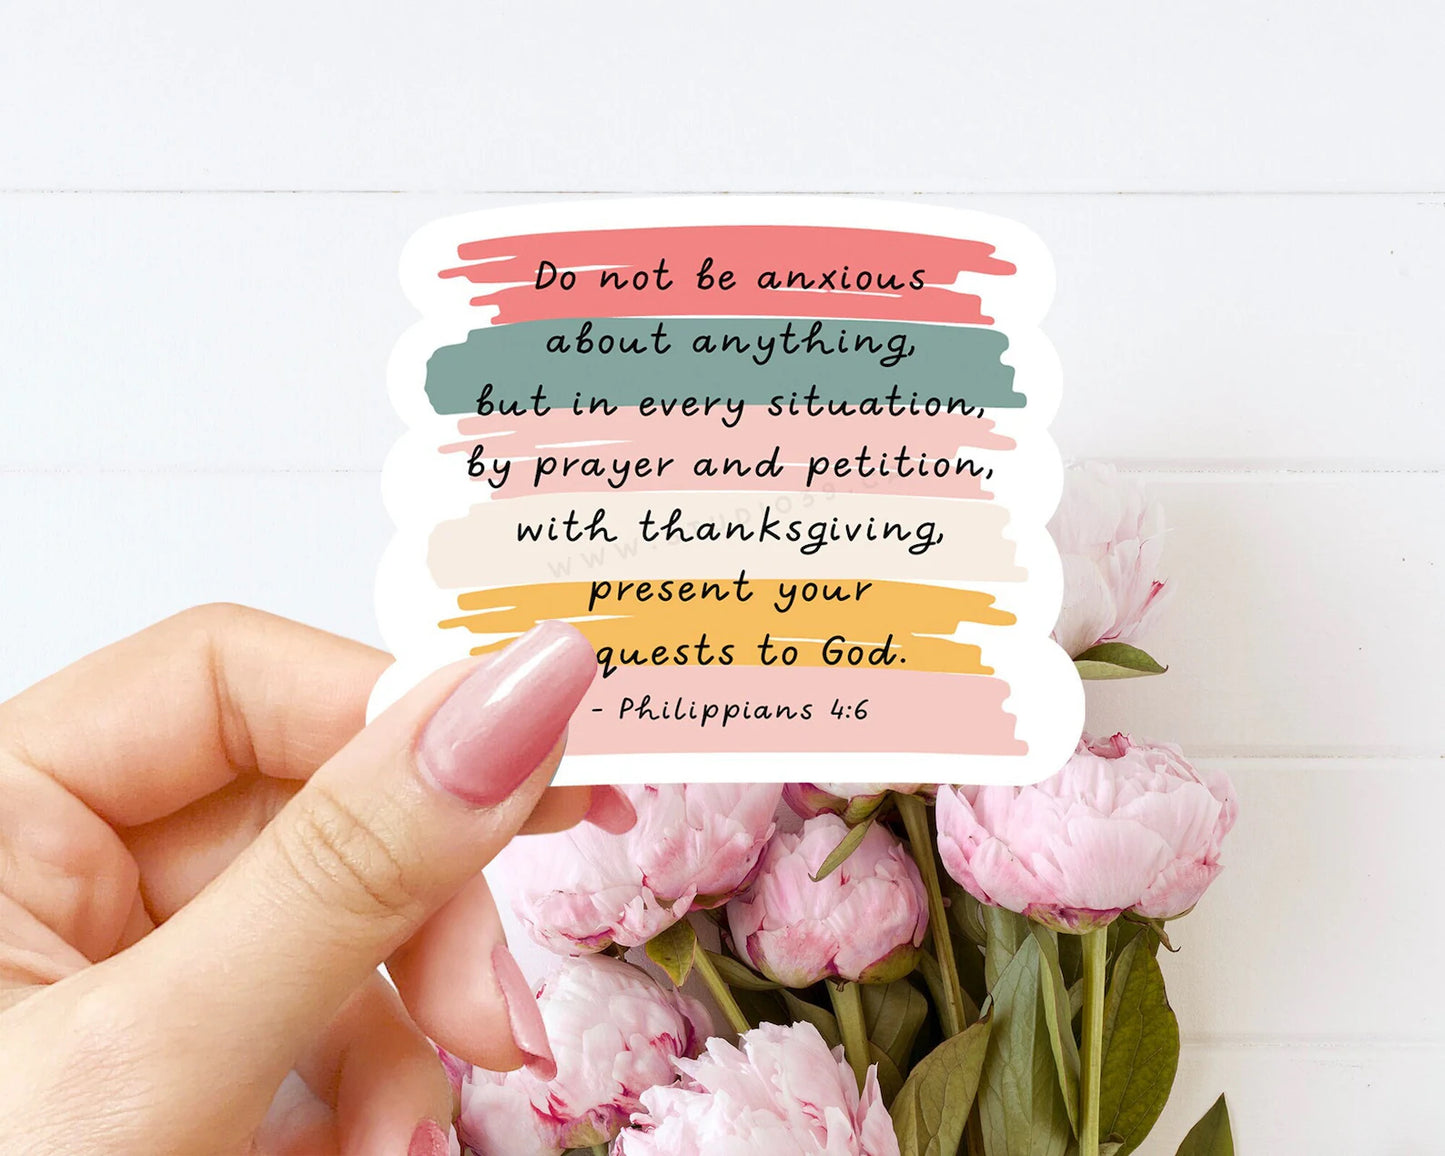 Do not be anxious
about anything,
but in every situation,
by prayer and petition,
with thanksgiving,
present your
quests to God.
- Philippians 4:6